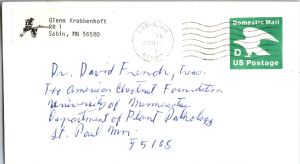 Glenn Krabbenhoft
RR 1
Sabin, MN 56580
Domestic Mail
D
US Postage
Dr. David French, Treas.
The American Chestnut Foundation
University of Minnesota
Department of Plant Pathology
St. Paul Mn.
55108